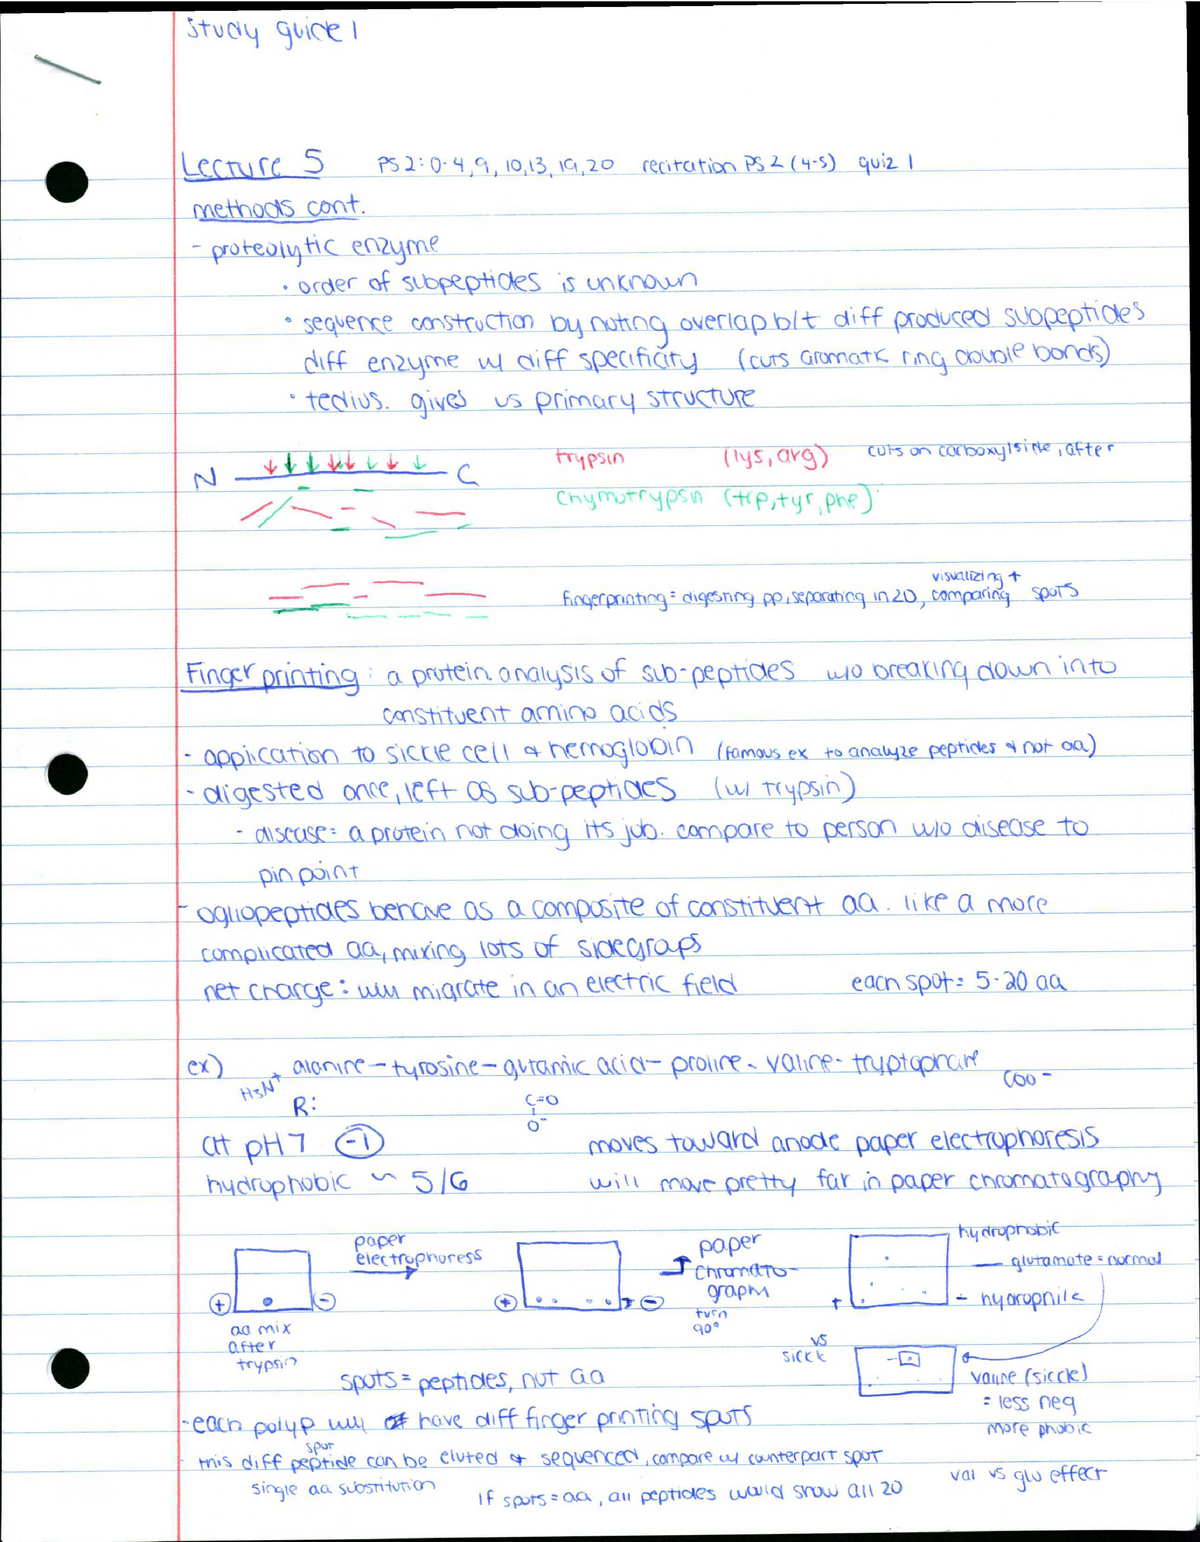 Study guide 1
Lecture 5 PS 2: 0-4, 9, 10, 13, 19, 20 recitation PS 2 (4-5) quiz 1
methods cont.
- proteolytic enzyme
• order of subpeptides is unknown
• sequence construction by noting overlap b/t diff produced subpeptides
diff enzyme w/ diff specificity (cuts aromatic ring double bonds)
• tedius. gives us primary structure
N C trypsin (lys, arg) cuts on carboxyl side, after
chymotrypsin (trp, tyr, phe)
visualizing +
fingerprinting = digesting pp, separating in 2D, comparing spots
Finger printing: a protein analysis of sub-peptides w/o breaking down into
constituent amino acids
- application to sickle cell & hemoglobin (famous ex to analyze peptides & not aa)
- digested once, left as sub-peptides (w/ trypsin)
- disease = a protein not doing its job. compare to person w/o disease to
pin point
- ogliopeptides behave as a composite of constituent aa. like a more
complicated aa, mixing lots of sidegraps
net charge: will migrate in an electric field each spot = 5-20 aa
ex) alanine - tyrosine - glutamic acid - proline - valine - tryptophane
H3N+ COO-
R: C=O
O-
at pH 7 -1 moves toward anode paper electrophoresis
hydrophobic ~ 5/6 will move pretty far in paper chromatography
paper electrophoress
paper chromatography
turn 90°
hydrophobic
glutamate = normal
- hydrophilic
+ - + - +
aa mix
after
trypsin
vs
sickle
valine (sickle)
= less neg
more phobic
spots = peptides, not aa
- each polyp will have diff finger printing spots
spot
this diff peptide can be eluted & sequenced, compare w/ counterpart spot
single aa substitution
if spots = aa, all peptides would show all 20
val vs glu effect